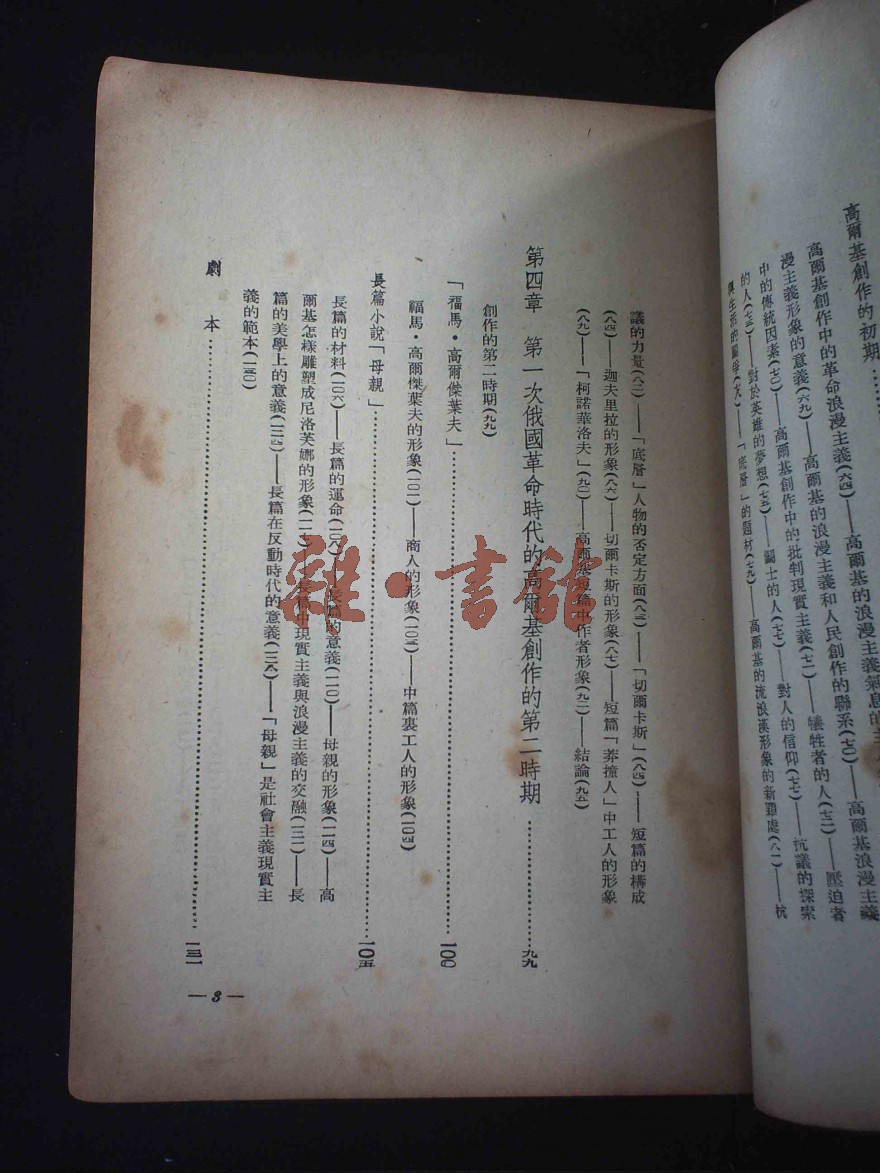 高爾基創作的初期
高爾基創作中的革命浪漫主義(六四)——高爾基的浪漫主義氣息的主
漫主義形象的意義(六九)——高爾基的浪漫主義和人民創作的聯系(七〇)——高爾基浪漫主義
中的傳統因素(七〇)——高爾基創作中的批判現實主義(七二)——犧牲者的人(七三)——壓迫者
的人(七三)——對於英雄的夢想(七五)——鬭士的人(七七)——對人的信仰(七七)——抗議的探索
——「底層」的題材(七九)——高爾基的流浪漢形象的新穎處(八一)——抗
議的力量(八二)——「底層」人物的否定方面(八三)——「切爾卡斯」(八四)——短篇的構成
(八四)——迦夫里拉的形象(八六)——切爾卡斯的形象(八七)——短篇「莽撞人」中工人的形象
(八九)——「柯諾華洛夫」(九〇)——高爾基短篇中作者形象(九二)——結論(九五)
第四章 第一次俄國革命時代的高爾基創作的第二時期…………九九
創作的第二時期(九九)
「福馬·高爾傑葉夫」…………一〇〇
福馬·高爾傑葉夫的形象(一〇一)——商人的形象(一〇三)——中篇裏工人的形象(一〇四)
長篇小說「母親」…………一〇五
長篇的材料(一〇六)——長篇的運命(一〇八)——長篇的意義(一一〇)——母親的形象(一一四)——高
爾基怎樣雕塑成尼洛芙娜的形象——長篇中現實主義與浪漫主義的交融——長
篇的美學上的意義(一二四)——長篇在反動時代的意義(一二八)——「母親」是社會主義現實主
義的範本(一三〇)
劇 本…………一三一
— 3 —
雜·書館